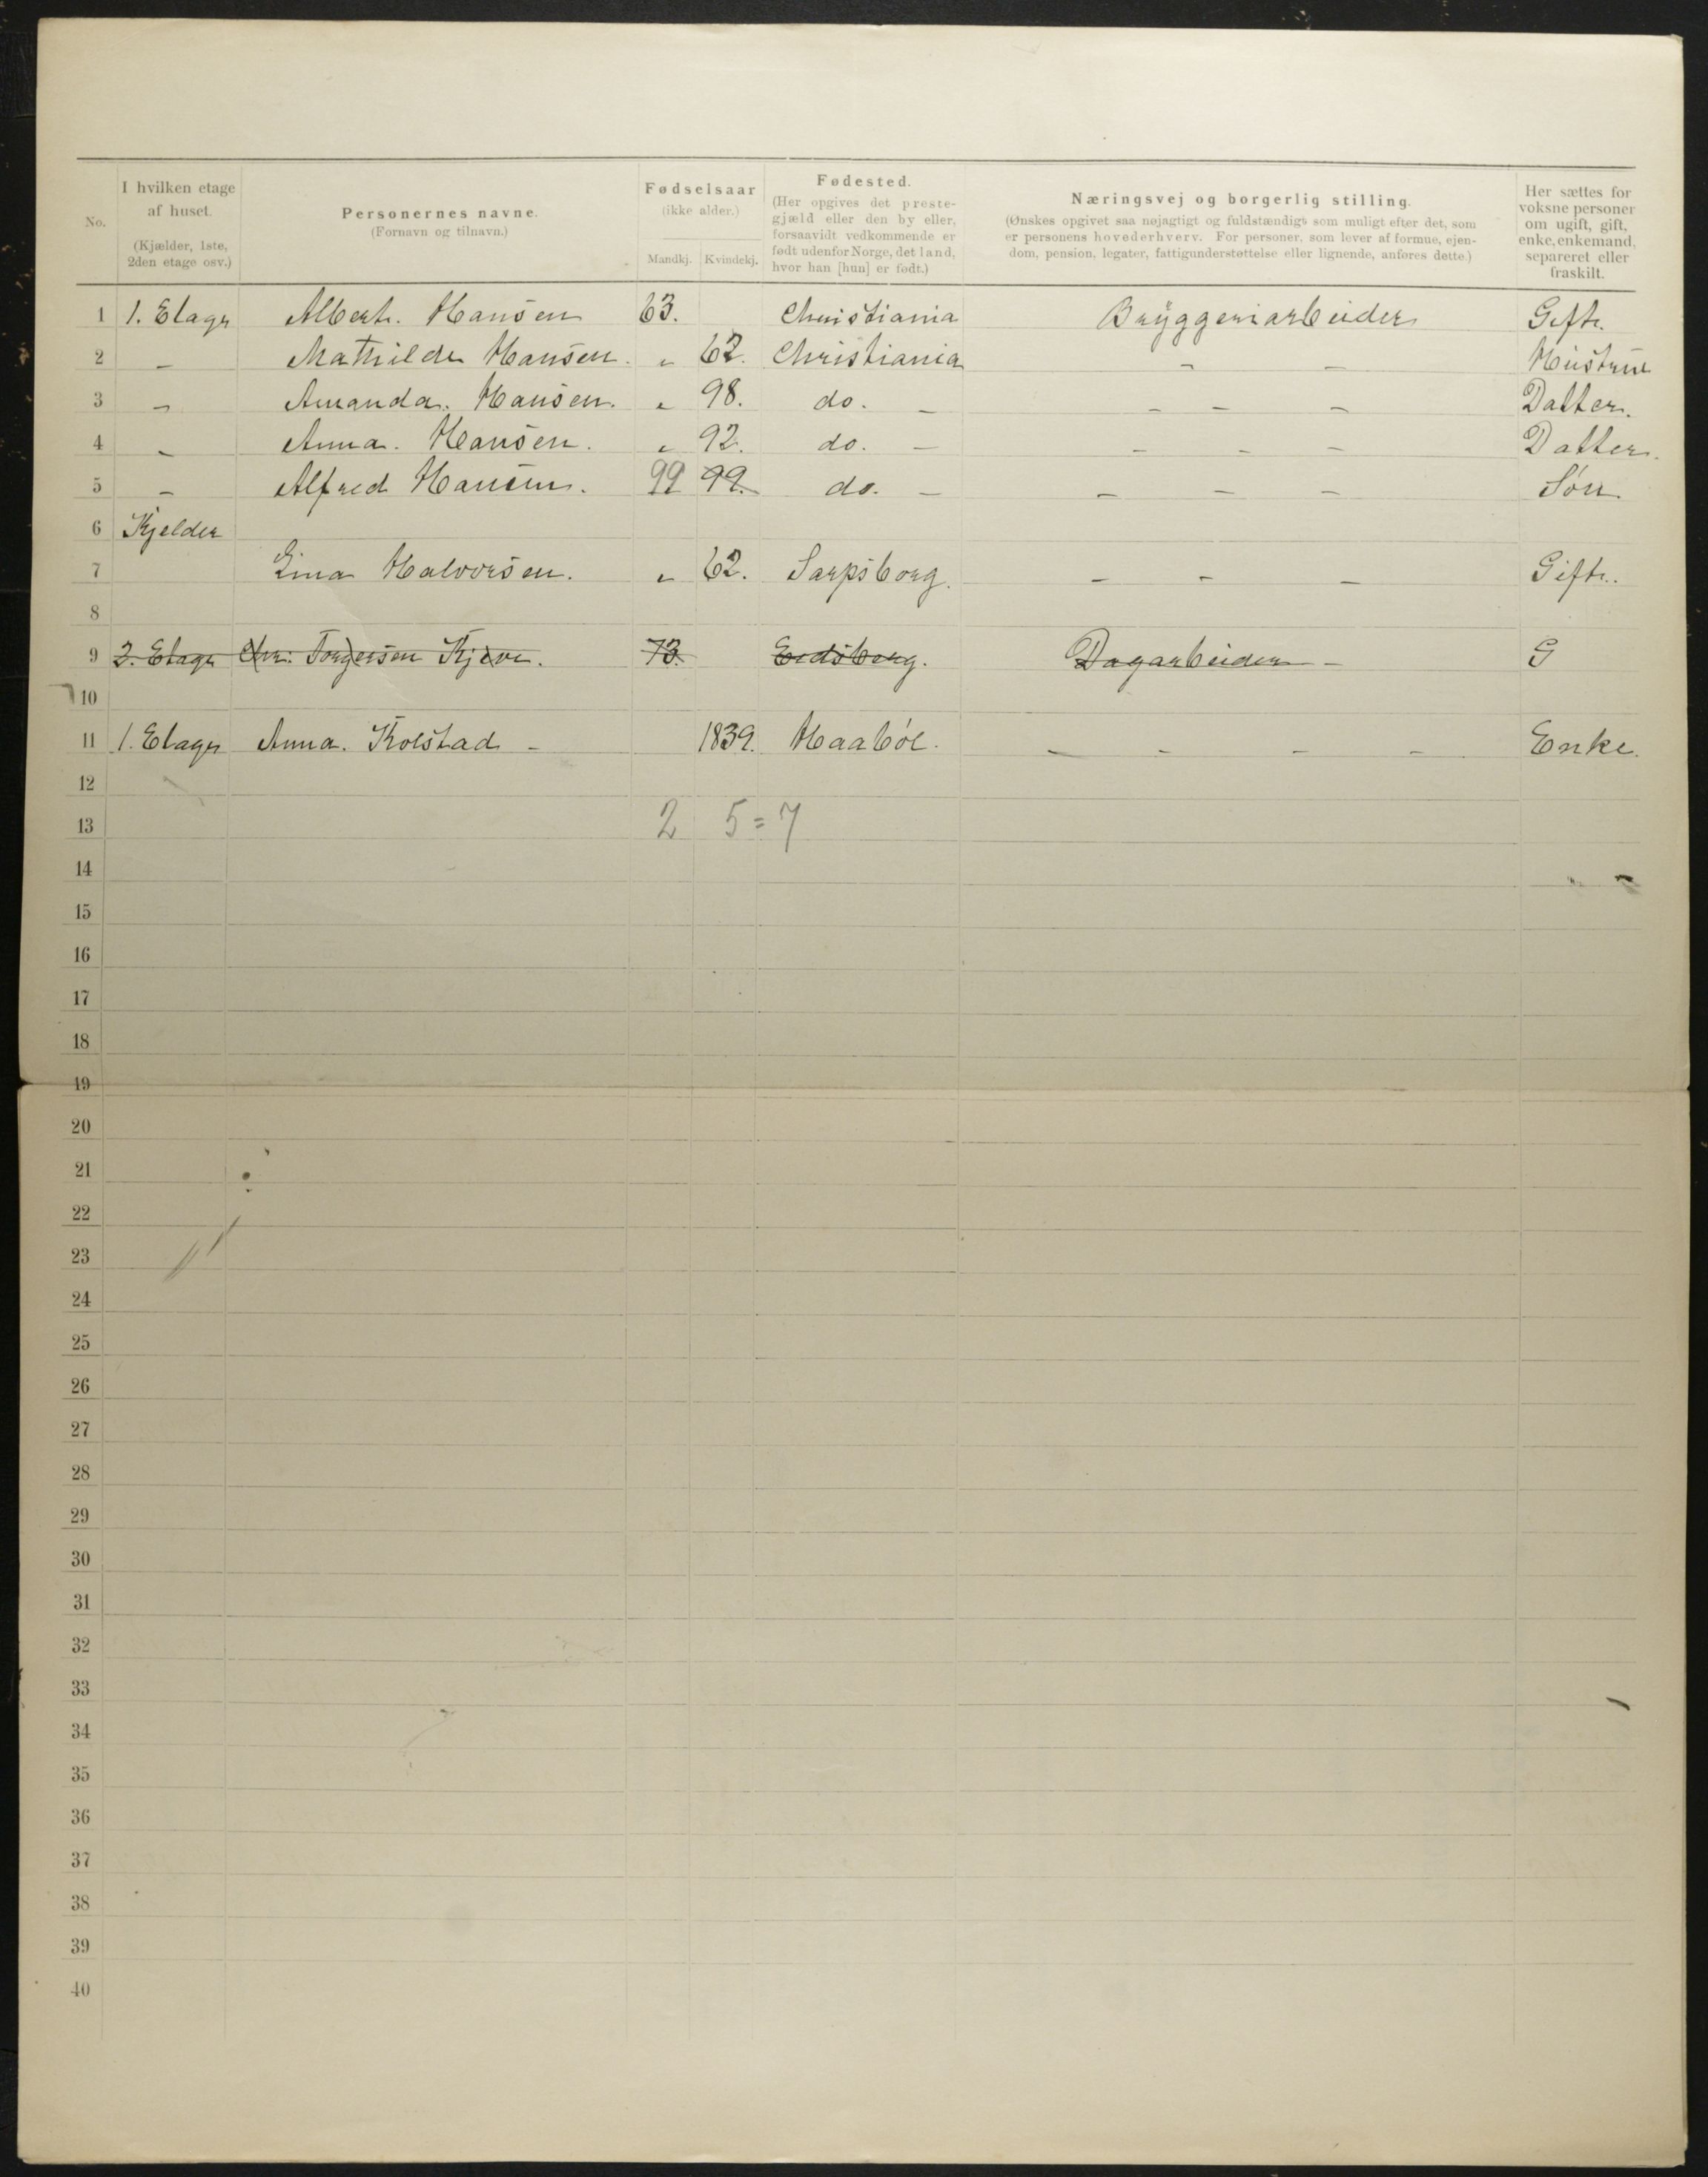 No.
I hvilken etage
af huset.
(Kjælder, 1ste,
2den etage osv.)
Personernes navne.
(Fornavn og tilnavn.)
Fødselsaar
(ikke alder.)
Mandkj. Kvindekj.
Fødested.
(Her opgives det preste-
gjæld eller den by eller,
forsaavidt vedkommende er
født udenfor Norge, det land,
hvor han [hun] er født.)
Næringsvej og borgerlig stilling.
(Ønskes opgivet saa nøjagtigt og fuldstændigt som muligt efter det, som
er personens hovederhverv. For personer, som lever af formue, ejen-
dom, pension, legater, fattigunderstøttelse eller lignende, anføres dette.)
Her sættes for
voksne personer
om ugift, gift,
enke, enkemand,
separeret eller
fraskilt.
1 1. Etage Albert. Hansen 63. Christiania Bryggeriarbeider Gift.
2 - Mathilde Hansen. „ 62. Christiania - - Hustrue
3 - Amanda. Hansen. „ 98. do. - - - - Datter.
4 - Anna. Hansen. „ 92. do. - - - - Datter.
5 - Alfred Hansen. 99 99. do. - - - - Søn.
6 Kjelder
7 Lina Halvorsen. „ 62. Sarpsborg. - - - Gift.
8
9 2. Etage Chr. Torgersen 73. Eidsberg. Dagarbeider - G
10
11 1. Etage Anna. Kolstad - 1839. Haabøl. - - - - Enke.
12
13 2 5 = 7
14
15
16
17
18
19
20
21
22
23
24
25
26
27
28
29
30
31
32
33
34
35
36
37
38
39
40